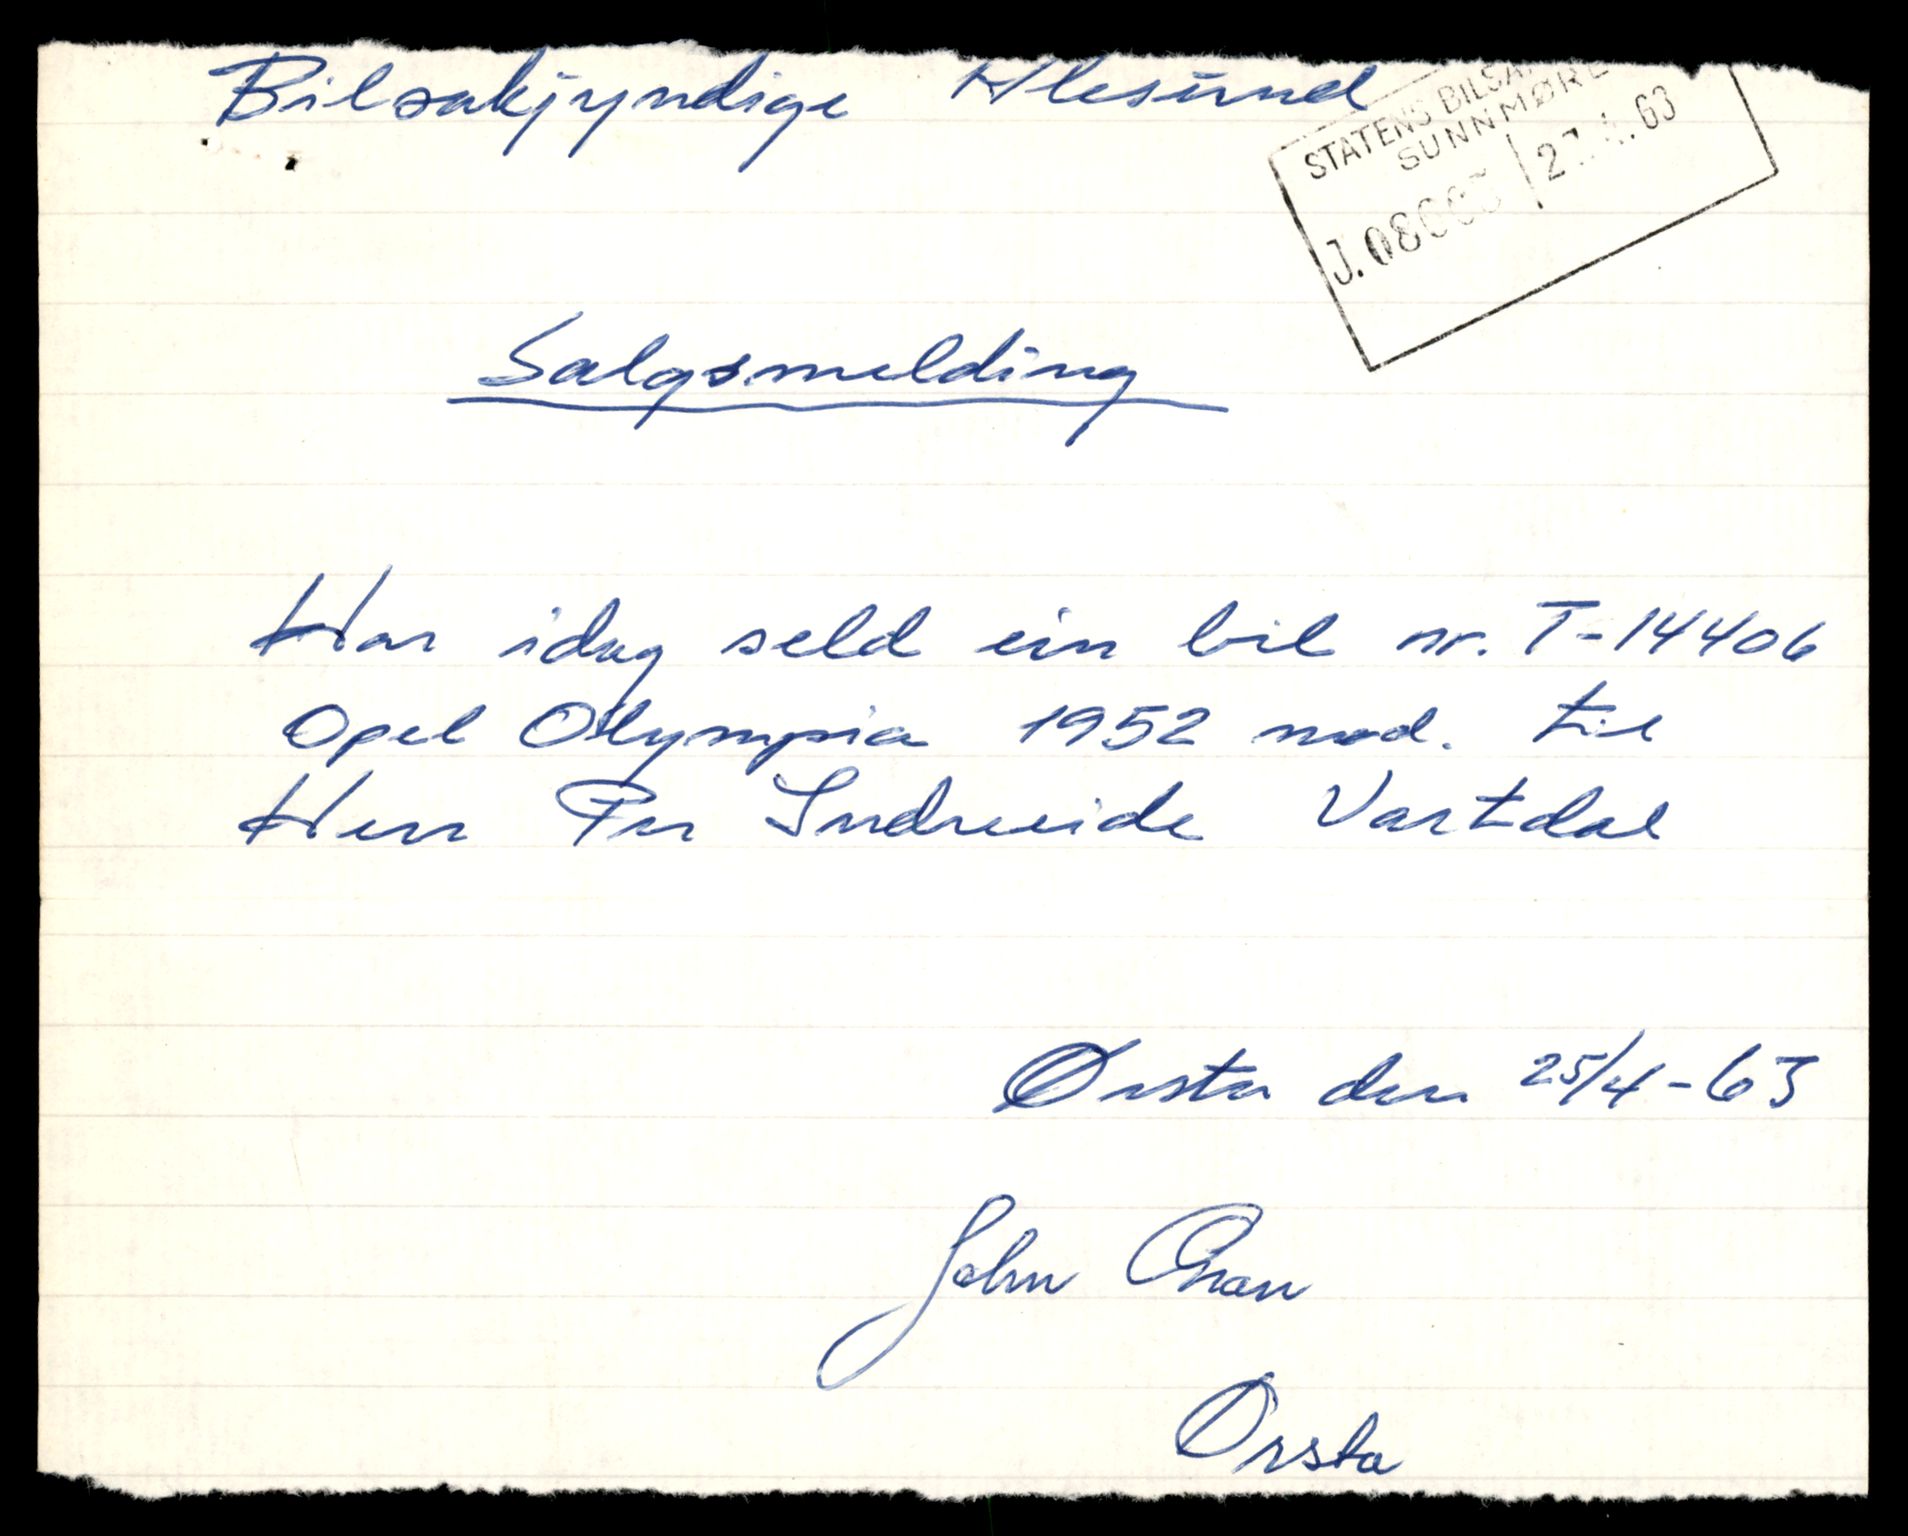 Bilsakjyndige Alesund
STATENS BILSA
SUNNMØRE
27.4.63
Salgsmelding
Har idag seld ein bil nr. T-14406
Opel Olympia 1952 mod. til
Herr Per Indreeide Vartdal
Ørsta den 25/4-63
John
Ørsta